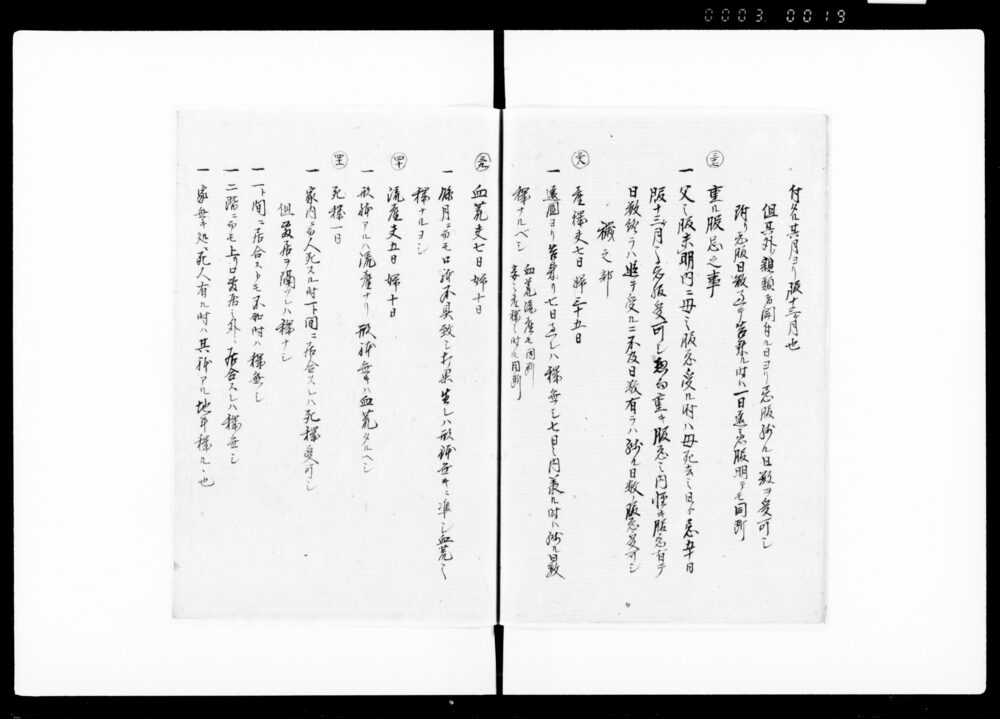 0003. 0019
付タル其月ヨリ服十三ケ月也
但其外親類者聞付ル日ヨリ忌服残ル日数ヲ受可シ
附り忌服日数過テ告来ル時ハ一日遠慮服明テモ同断
重ル服忌之事
一 父之服未明内ニ母之服忌受ル時ハ母死去之日ゟ忌五十日
服十三ケ月之忌服受可シ 重キ服忌之内軽キ服忌有テ
日数終ラハ追テ受ルニ不及日数有ラハ残ル日数服忌受可シ
穢之部
産穢夫七日婦三十五日
一 遠国ヨリ告来リ七日過レハ穢無シ七日之内来ル時ハ残ル日数
穢ナルベシ
血荒流産モ同断
血荒夫七日婦十日
一 月ニ而モ 形体無キニ準シ血荒之
穢ナルヨシ
流産夫五日婦十日
一 形体アルハ流産ナリ形体無キハ血荒タルヘシ
死穢一日
一 家内ニ而人死スル時一下間ニ居合スレハ死穢受可シ
但敷居ヲ隔ツレハ穢ナシ
一 一下間ニ居合ストモ不知時ハ穢無シ
一 二階ニ而モ上リ口敷居之外ニ居合スレハ穢無シ
一 家無キ処ハ死人有ル時ハ其体アル地斗穢ルヽ也